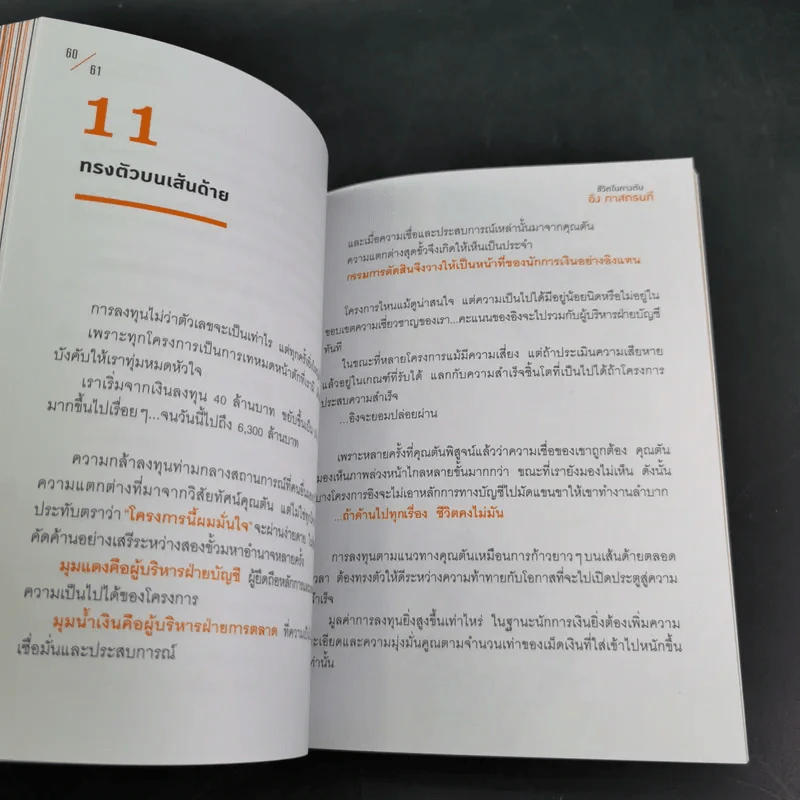 60
61
11
ทรงตัวบนเส้นด้าย
การลงทุนไม่ว่าตัวเลขจะเป็นเท่าไร แต่ทุกครั้ง
เพราะทุกโครงการเป็นการเทหมดหน้าตักที่เรามี
บังคับให้เราทุ่มหมดหัวใจ
เราเริ่มจากเงินลงทุน 40 ล้านบาท ขยับขึ้นเป็น
มากขึ้นไปเรื่อยๆ...จนวันนี้ไปถึง 6,300 ล้านบาท
ความกล้าลงทุนท่ามกลางสถานการณ์ที่คนอื่น
ความแตกต่างที่มาจากวิสัยทัศน์คุณตัน แต่ไม่ใช่ทุก
ประทับตราว่า "โครงการนี้ผมมั่นใจ" จะผ่านง่ายดาย
คัดค้านอย่างเสรีระหว่างสองขั้วมหาอำนาจหลายครั้ง
มุมแดงคือผู้บริหารฝ่ายบัญชี ผู้ยึดถือหลักการ
ความเป็นไปได้ของโครงการ
มุมน้ำเงินคือผู้บริหารฝ่ายการตลาด ที่ความ
เชื่อมั่นและประสบการณ์
ชีวิตในทางตัน
อิง ภาสกรนที
และเมื่อความเชื่อและประสบการณ์เหล่านั้นมาจากคุณตัน
ความแตกต่างสุดขั้วจึงเกิดให้เห็นเป็นประจำ
กรรมการตัดสินจึงวางให้เป็นหน้าที่ของนักการเงินอย่างอิงแทน
โครงการไหนแม้ดูน่าสนใจ แต่ความเป็นไปได้มีอยู่น้อยนิดหรือไม่อยู่ใน
ขอบเขตความเชี่ยวชาญของเรา...คะแนนของอิงจะไปรวมกับผู้บริหารฝ่ายบัญชี
ทันที
ในขณะที่หลายโครงการแม้มีความเสี่ยง แต่ถ้าประเมินความเสียหาย
แล้วอยู่ในเกณฑ์ที่รับได้ แลกกับความสำเร็จชิ้นโตที่เป็นไปได้ถ้าโครงการ
ประสบความสำเร็จ
...อิงจะยอมปล่อยผ่าน
เพราะหลายครั้งที่คุณตันพิสูจน์แล้วว่าความเชื่อของเขาถูกต้อง คุณตัน
มองเห็นภาพล่วงหน้าไกลหลายขั้นมากกว่า ขณะที่เรายังมองไม่เห็น ดังนั้น
บางโครงการอิงจะไม่เอาหลักการทางบัญชีไปมัดแขนขาให้เขาทำงานลำบาก
...ถ้าค้านไปทุกเรื่อง ชีวิตคงไม่มัน
การลงทุนตามแนวทางคุณตันเหมือนการก้าวยาวๆ บนเส้นด้ายตลอด
เวลา ต้องทรงตัวให้ดีระหว่างความท้าทายกับโอกาสที่จะไปเปิดประตูสู่ความ
สำเร็จ
มูลค่าการลงทุนยิ่งสูงขึ้นเท่าไหร่ ในฐานะนักการเงินยิ่งต้องเพิ่มความ
ละเอียดและความมุ่งมั่นคูณตามจำนวนเท่าของเม็ดเงินที่ใส่เข้าไปหนักขึ้น
เท่านั้น